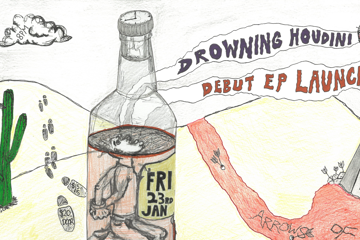 DROWNING HOUDINI
DEBUT EP LAUNCH
FRI
23RD
JAN
ARROWS